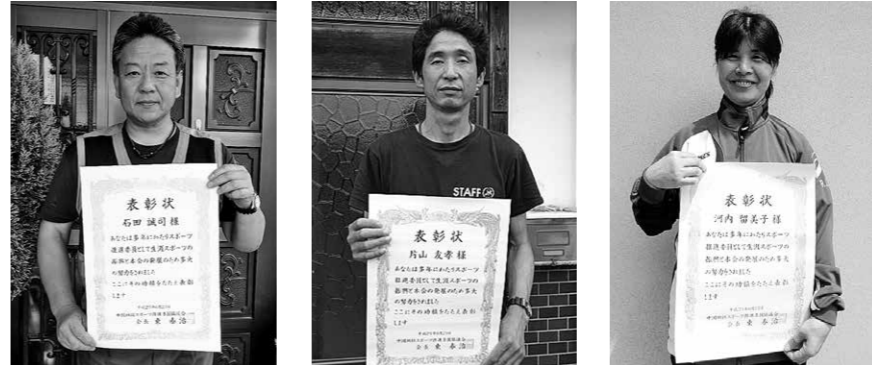 表彰状
石田 誠司 様
あなたは多年にわたりスポーツ
推進委員として生涯スポーツの
振興と本会の発展のため多大
の貢献をされました
ここにその功績をたたえ表彰
します
会長 東 泰治
STAFF
表彰状
片山 友孝 様
あなたは多年にわたりスポーツ
推進委員として生涯スポーツの
振興と本会の発展のため多大
の貢献をされました
ここにその功績をたたえ表彰
します
会長 東 泰治
表彰状
河内 留美子 様
あなたは多年にわたりスポーツ
推進委員として生涯スポーツの
振興と本会の発展のため多大
の貢献をされました
ここにその功績をたたえ表彰
します
会長 東 泰治